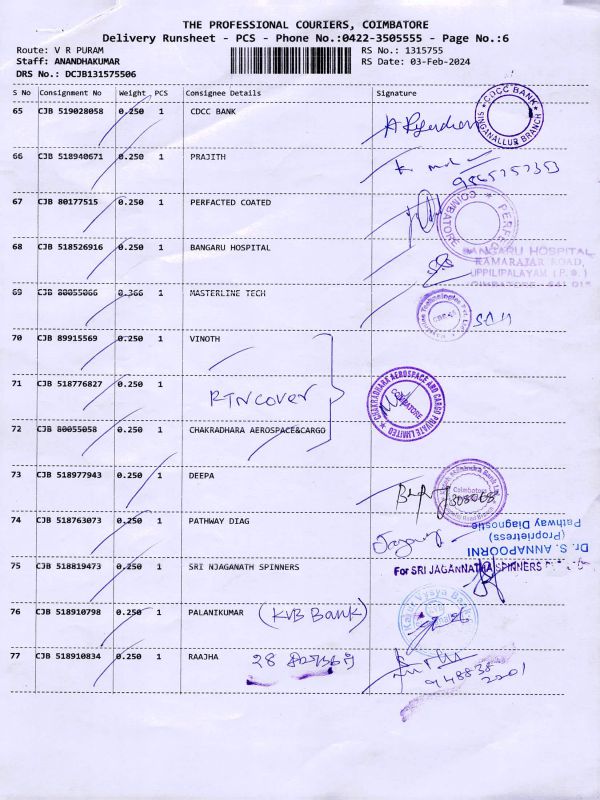 THE PROFESSIONAL COURIERS, COIMBATORE
Delivery Runsheet - PCS - Phone No.:0422-3505555 - Page No.:6
Route: V R PURAM RS No.: 1315755
Staff: ANANDHAKUMAR RS Date: 03-Feb-2024
DRS No.: DCJB131575506
S No Consignment No Weight PCS Consignee Details Signature
65 CJB 519028058 0.250 1 CDCC BANK
CDCC BANK SINGANALLUR BRANCH
66 CJB 518940671 0.250 1 PRAJITH
67 CJB 80177515 0.250 1 PERFACTED COATED
COIMBATORE
68 CJB 518526916 0.250 1 BANGARU HOSPITAL
BANGARU HOSPITAL
KAMARAJAR ROAD,
UPPILIPALAYAM (P.O.)
69 CJB 80055066 0.366 1 MASTERLINE TECH
70 CJB 89915569 0.250 1 VINOTH
71 CJB 518776827 0.250 1
RTN COVER
CHAKRADHARA AEROSPACE AND CARGO PRIVATE LIMITED
COIMBATORE
72 CJB 80055058 0.250 1 CHAKRADHARA AEROSPACE&CARGO
73 CJB 518977943 0.250 1 DEEPA
Coimbatore
74 CJB 518763073 0.250 1 PATHWAY DIAG
Dr. S. ANNAPOORNI
(Proprietress)
Pathway Diagnostic
75 CJB 518819473 0.250 1 SRI NJAGANATH SPINNERS
For SRI JAGANNATHA SPINNERS
76 CJB 518910798 0.250 1 PALANIKUMAR (KVB Bank)
Karur Vysya Bank
77 CJB 518910834 0.250 1 RAAJHA 28